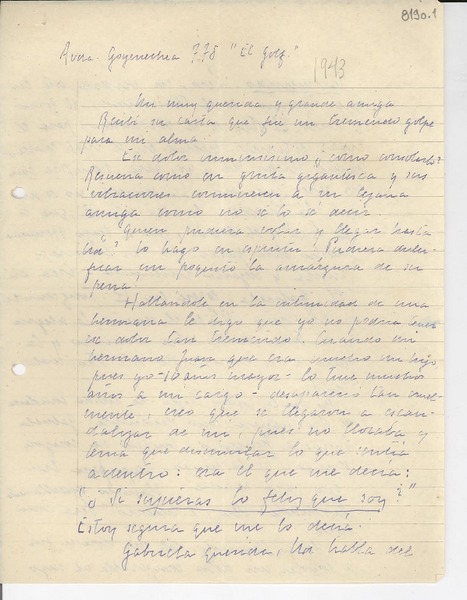 8130.1
Avda. Goyenechea 778 "El Golf."
1943
Mi muy querida y grande amiga
Recibí su carta que fué un tremendo golpe
para mi alma.
Ese dolor inmensísimo ¿cómo consolarlo?
Resuena como un grito gigantesco y sus
vibraciones conmueven a su lejana
amiga como no se lo sé decir.
¿Quién pudiera volar y llegar hasta
Ud? Lo hago en espíritu! Pudiera dulci-
ficar un poquito la amargura de su
pena!
Hablándole en la intimidad de una
hermana le digo que yo no podría tener
ese dolor tan tremendo. Cuando mi
hermano Juan que era mucho mi hijo
pues yo 10 años mayor lo tuve muchos
años a mi cargo - desapareció tan cruel-
mente, creo que se llegaron a escan-
dalizar de mi, pues no lloraba y
tenía que desmentir lo que sentía
adentro: era él que me decía:
"¡Si supieras lo feliz que soy!"
Estoy segura que me lo decía.
Gabriela querida, Ud habla del